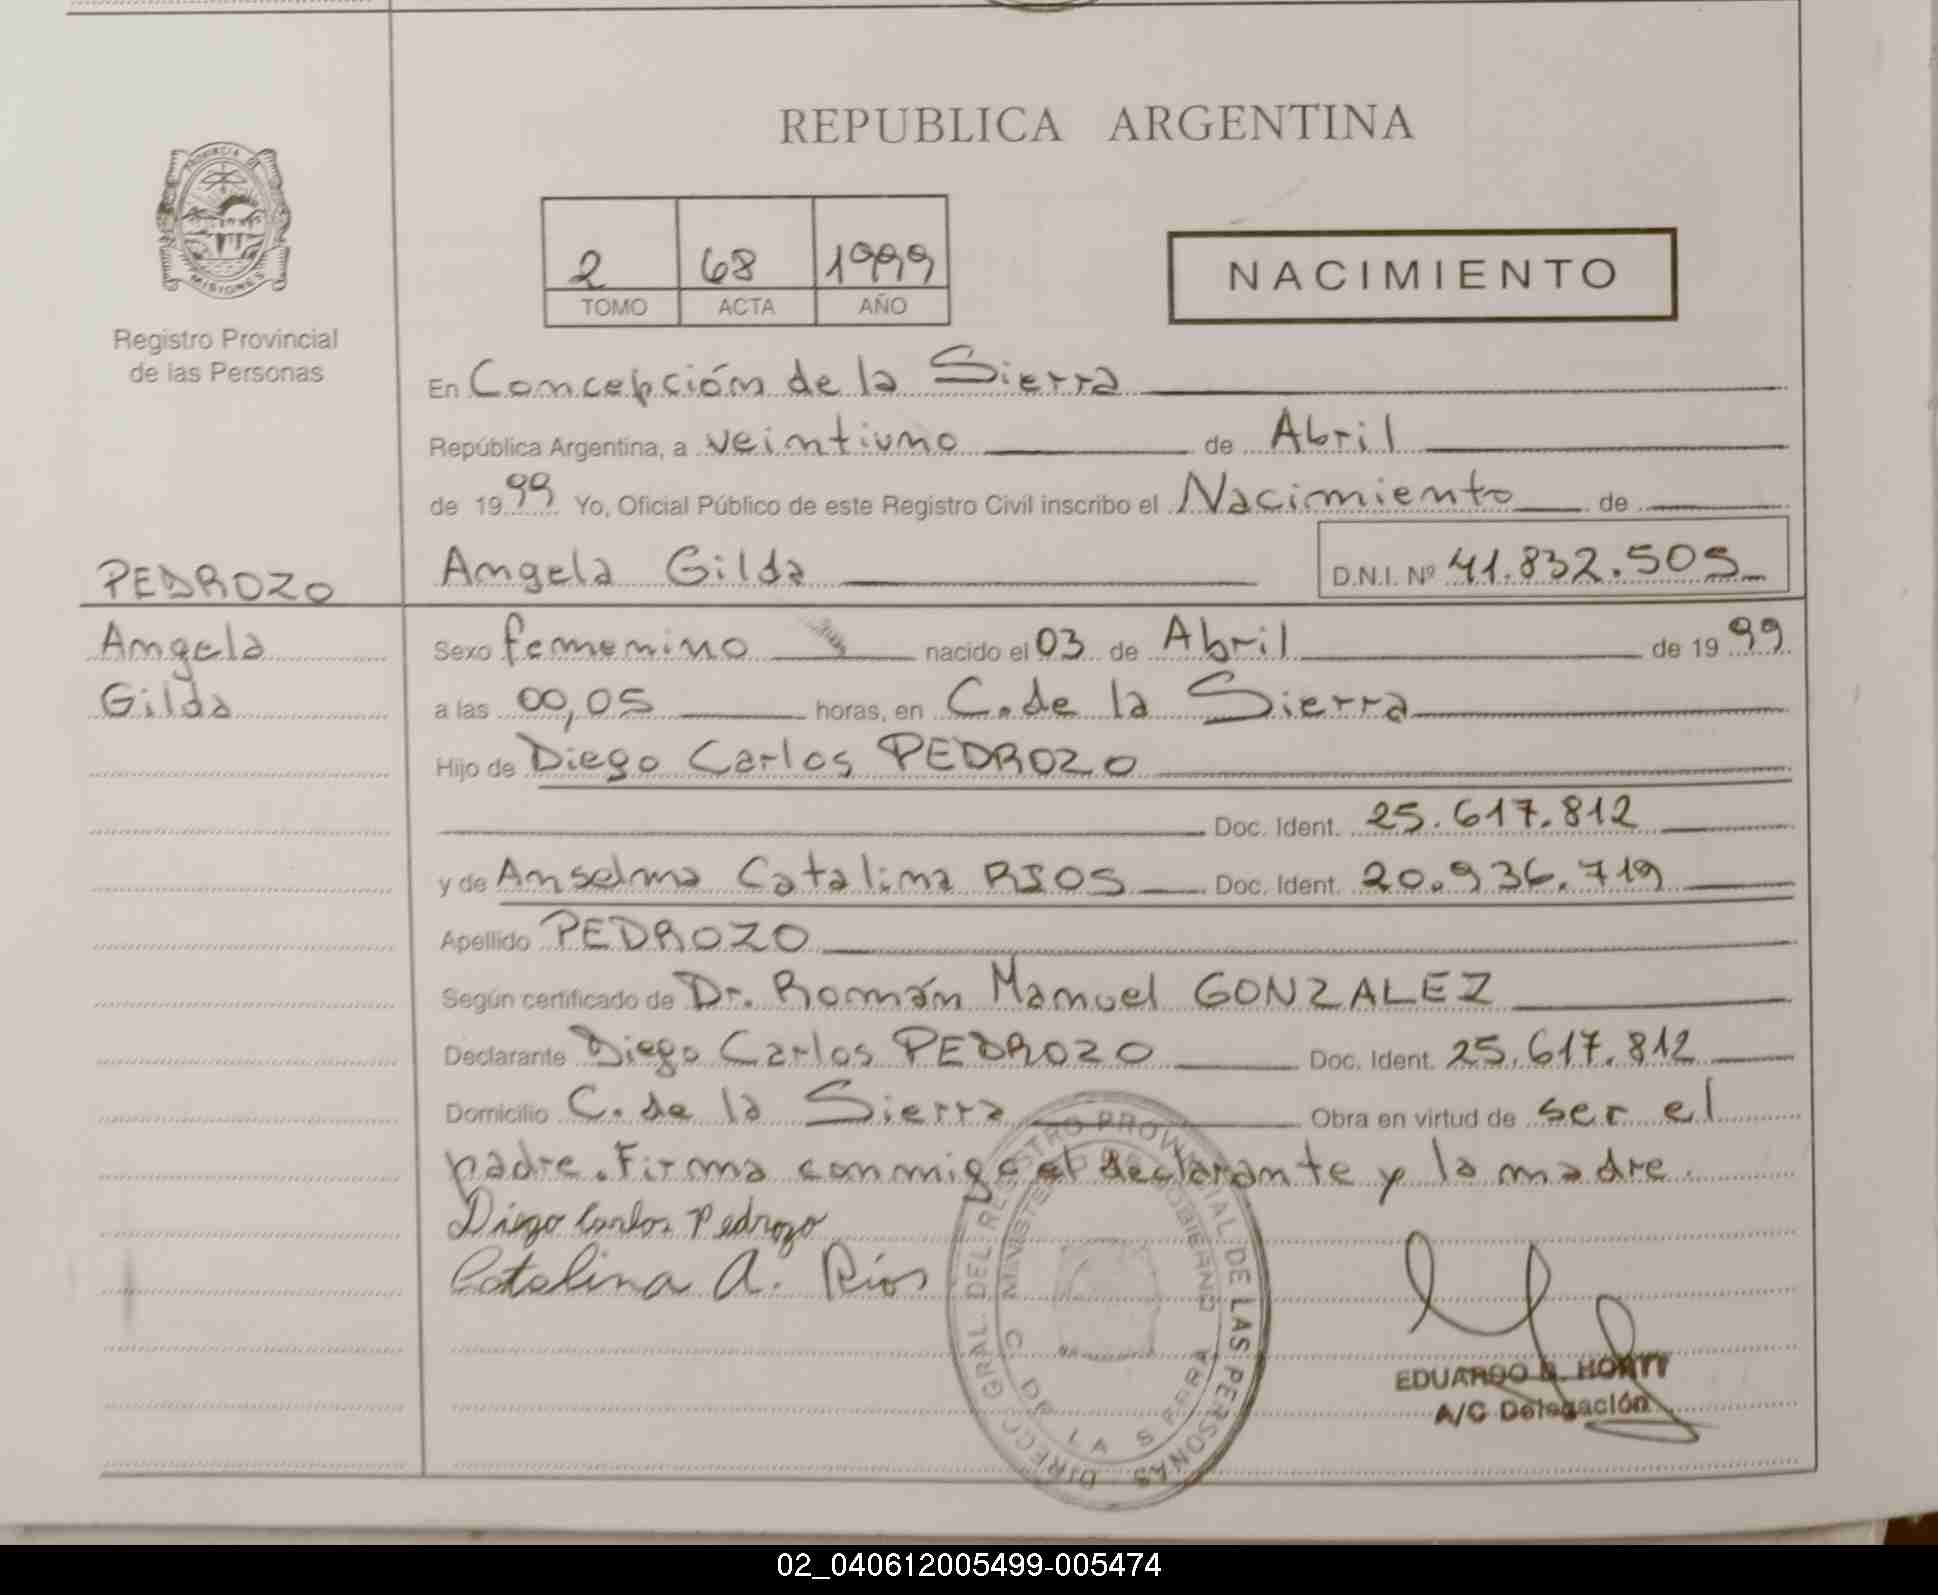 REPUBLICA ARGENTINA
PROVINCIA DE
MISIONES
Registro Provincial
de las Personas
2 68 1999
TOMO ACTA AÑO
NACIMIENTO
En Concepción de la Sierra
República Argentina, a veintiuno de Abril
de 1999 Yo, Oficial Público de este Registro Civil inscribo el Nacimiento de
PEDROZO Angela Gilda D.N.I. Nº 41.832.505
Angela
Gilda
Sexo femenino nacido el 03 de Abril de 1999
a las 00,05 horas, en C. de la Sierra
Hijo de Diego Carlos PEDROZO
Doc. Ident. 25.617.812
y de Anselma Catalina RIOS Doc. Ident. 20.936.719
Apellido PEDROZO
Según certificado de Dr. Román Manuel GONZALEZ
Declarante Diego Carlos PEDROZO Doc. Ident. 25.617.812
Domicilio C. de la Sierra Obra en virtud de ser el
padre. Firma conmigo el declarante y la madre.
Diego Carlos Pedrozo
Catalina A. Rios
DIRECC. GRAL. DEL REGISTRO PROVINCIAL DE LAS PERSONAS
MINISTERIO DE GOBIERNO
C. DE LA SIERRA
EDUARDO
A/C Delegación
02_040612005499-005474